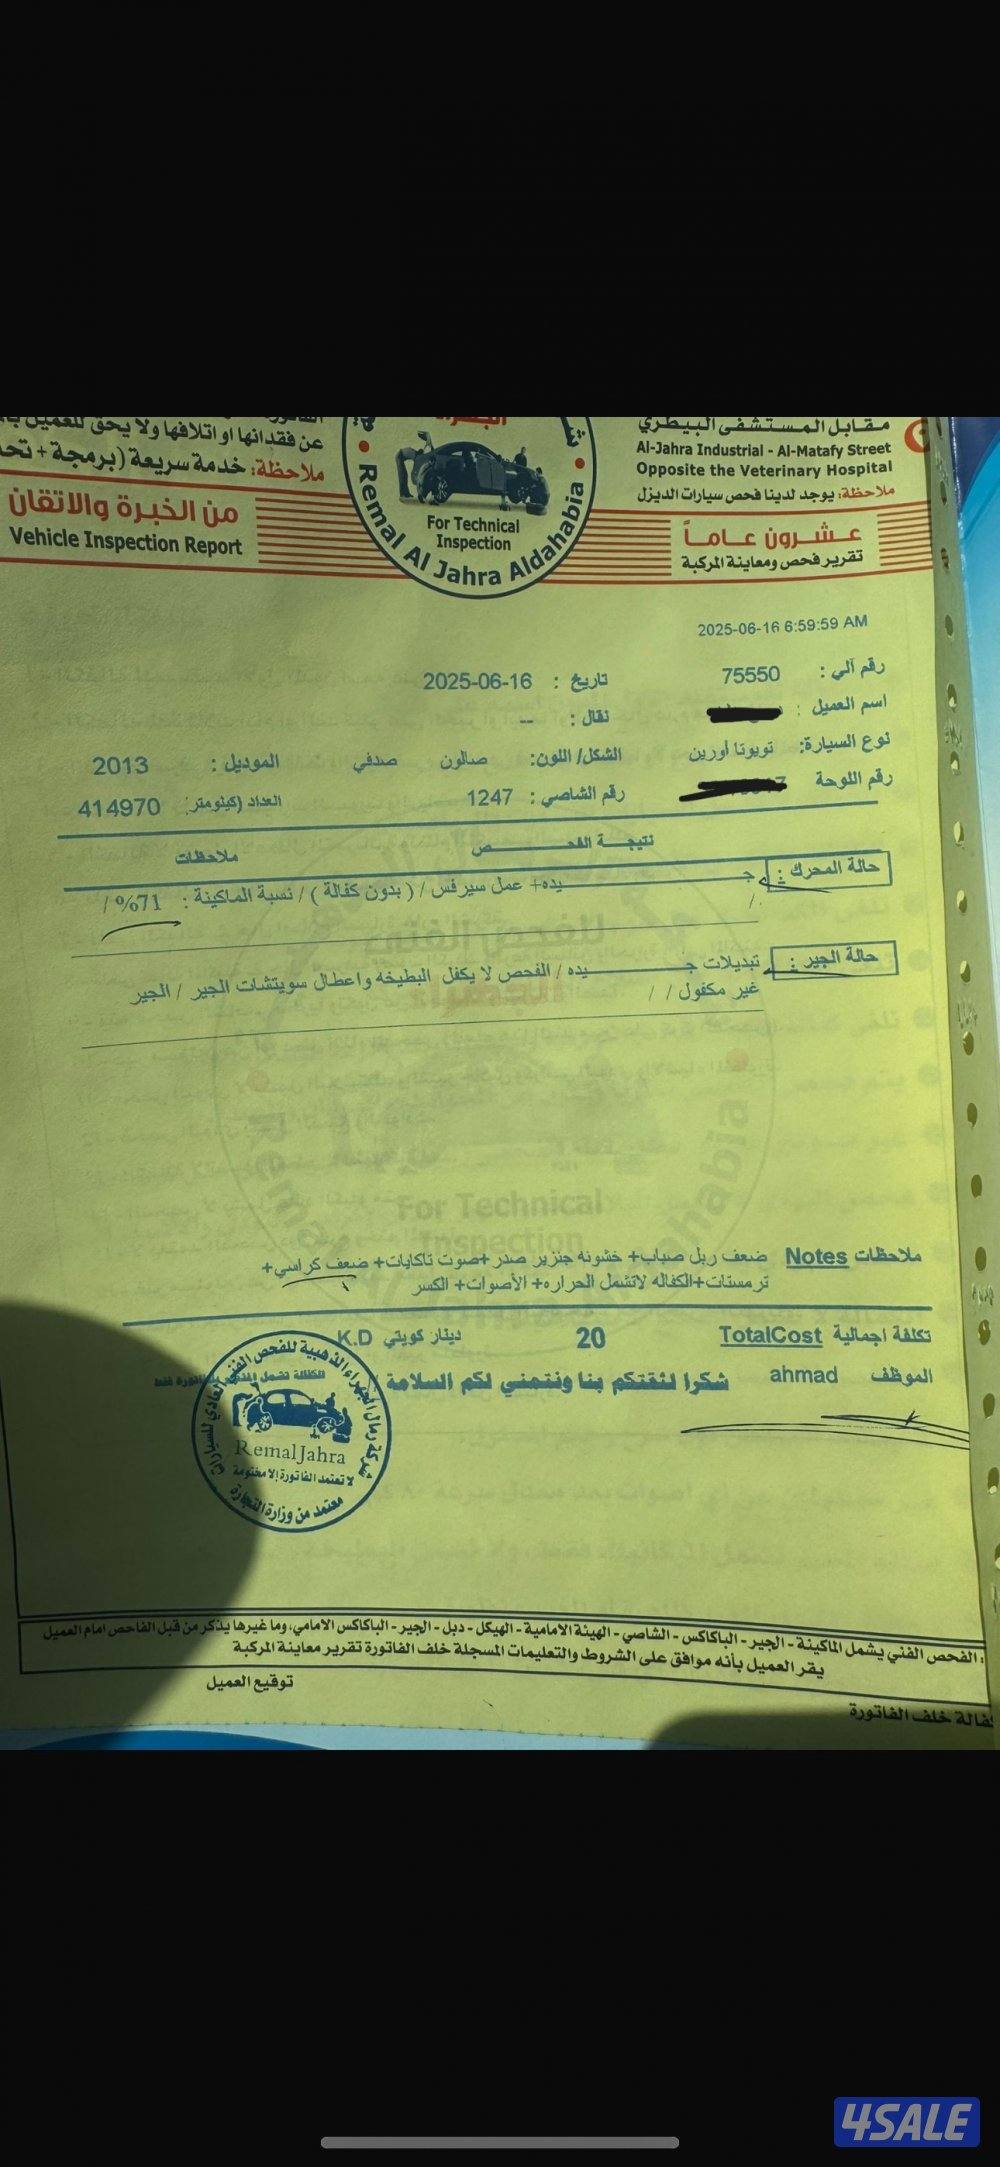 عن فقدانها او اتلافها ولا يحق للعميل
ملاحظة: خدمة سريعة (برمجة +
من الخبرة والاتقان
Vehicle Inspection Report
For Technical
Inspection
Remal Al Jahra Aldahabia
مقابل المستشفى البيطري
Al-Jahra Industrial - Al-Matafy Street
Opposite the Veterinary Hospital
ملاحظة: يوجد لدينا فحص سيارات الديزل
عشرون عاماً
تقرير فحص ومعاينة المركبة
2025-06-16 6:59:59 AM
رقم آلي : 75550 تاريخ : 2025-06-16
اسم العميل : نقال : --
نوع السيارة: تويوتا أورين الشكل/ اللون: صالون صدفي الموديل : 2013
رقم اللوحة رقم الشاصي : 1247 العداد (كيلومتر: 414970
نتيجة الفحص ملاحظات
حالة المحرك : جيده+ عمل سيرفس / ( بدون كفالة ) / نسبة الماكينة : 71% /
/
حالة الجير : تبديلات جيده / الفحص لا يكفل البطيخه واعطال سويتشات الجير / الجير
غير مكفول / /
For Technical
Inspection
ملاحظات Notes ضعف ربل صباب+ خشونه جنزير صدر +صوت تاكايات+ ضعف كراسي+
ترمستات+الكفاله لاتشمل الحراره+ الأصوات+ الكسر
تكلفة اجمالية TotalCost 20 دينار كويتي K.D
الموظف ahmad شكرا لثقتكم بنا ونتمني لكم السلامة
شركة رمال الجهراء الذهبية للفحص الفني العادي للسيارات
RemalJahra
لا تعتمد الفاتورة إلا مختومة
معتمد من وزارة التجارة
: الفحص الفني يشمل الماكينة - الجير - الباكاكس - الشاصي - الهيئة الامامية - الهيكل - دبل - الجير - الباكاكس الامامي، وما غيرها يذكر من قبل الفاحص امام العميل
يقر العميل بأنه موافق على الشروط والتعليمات المسجلة خلف الفاتورة تقرير معاينة المركبة
توقيع العميل
خلف الفاتورة
4SALE